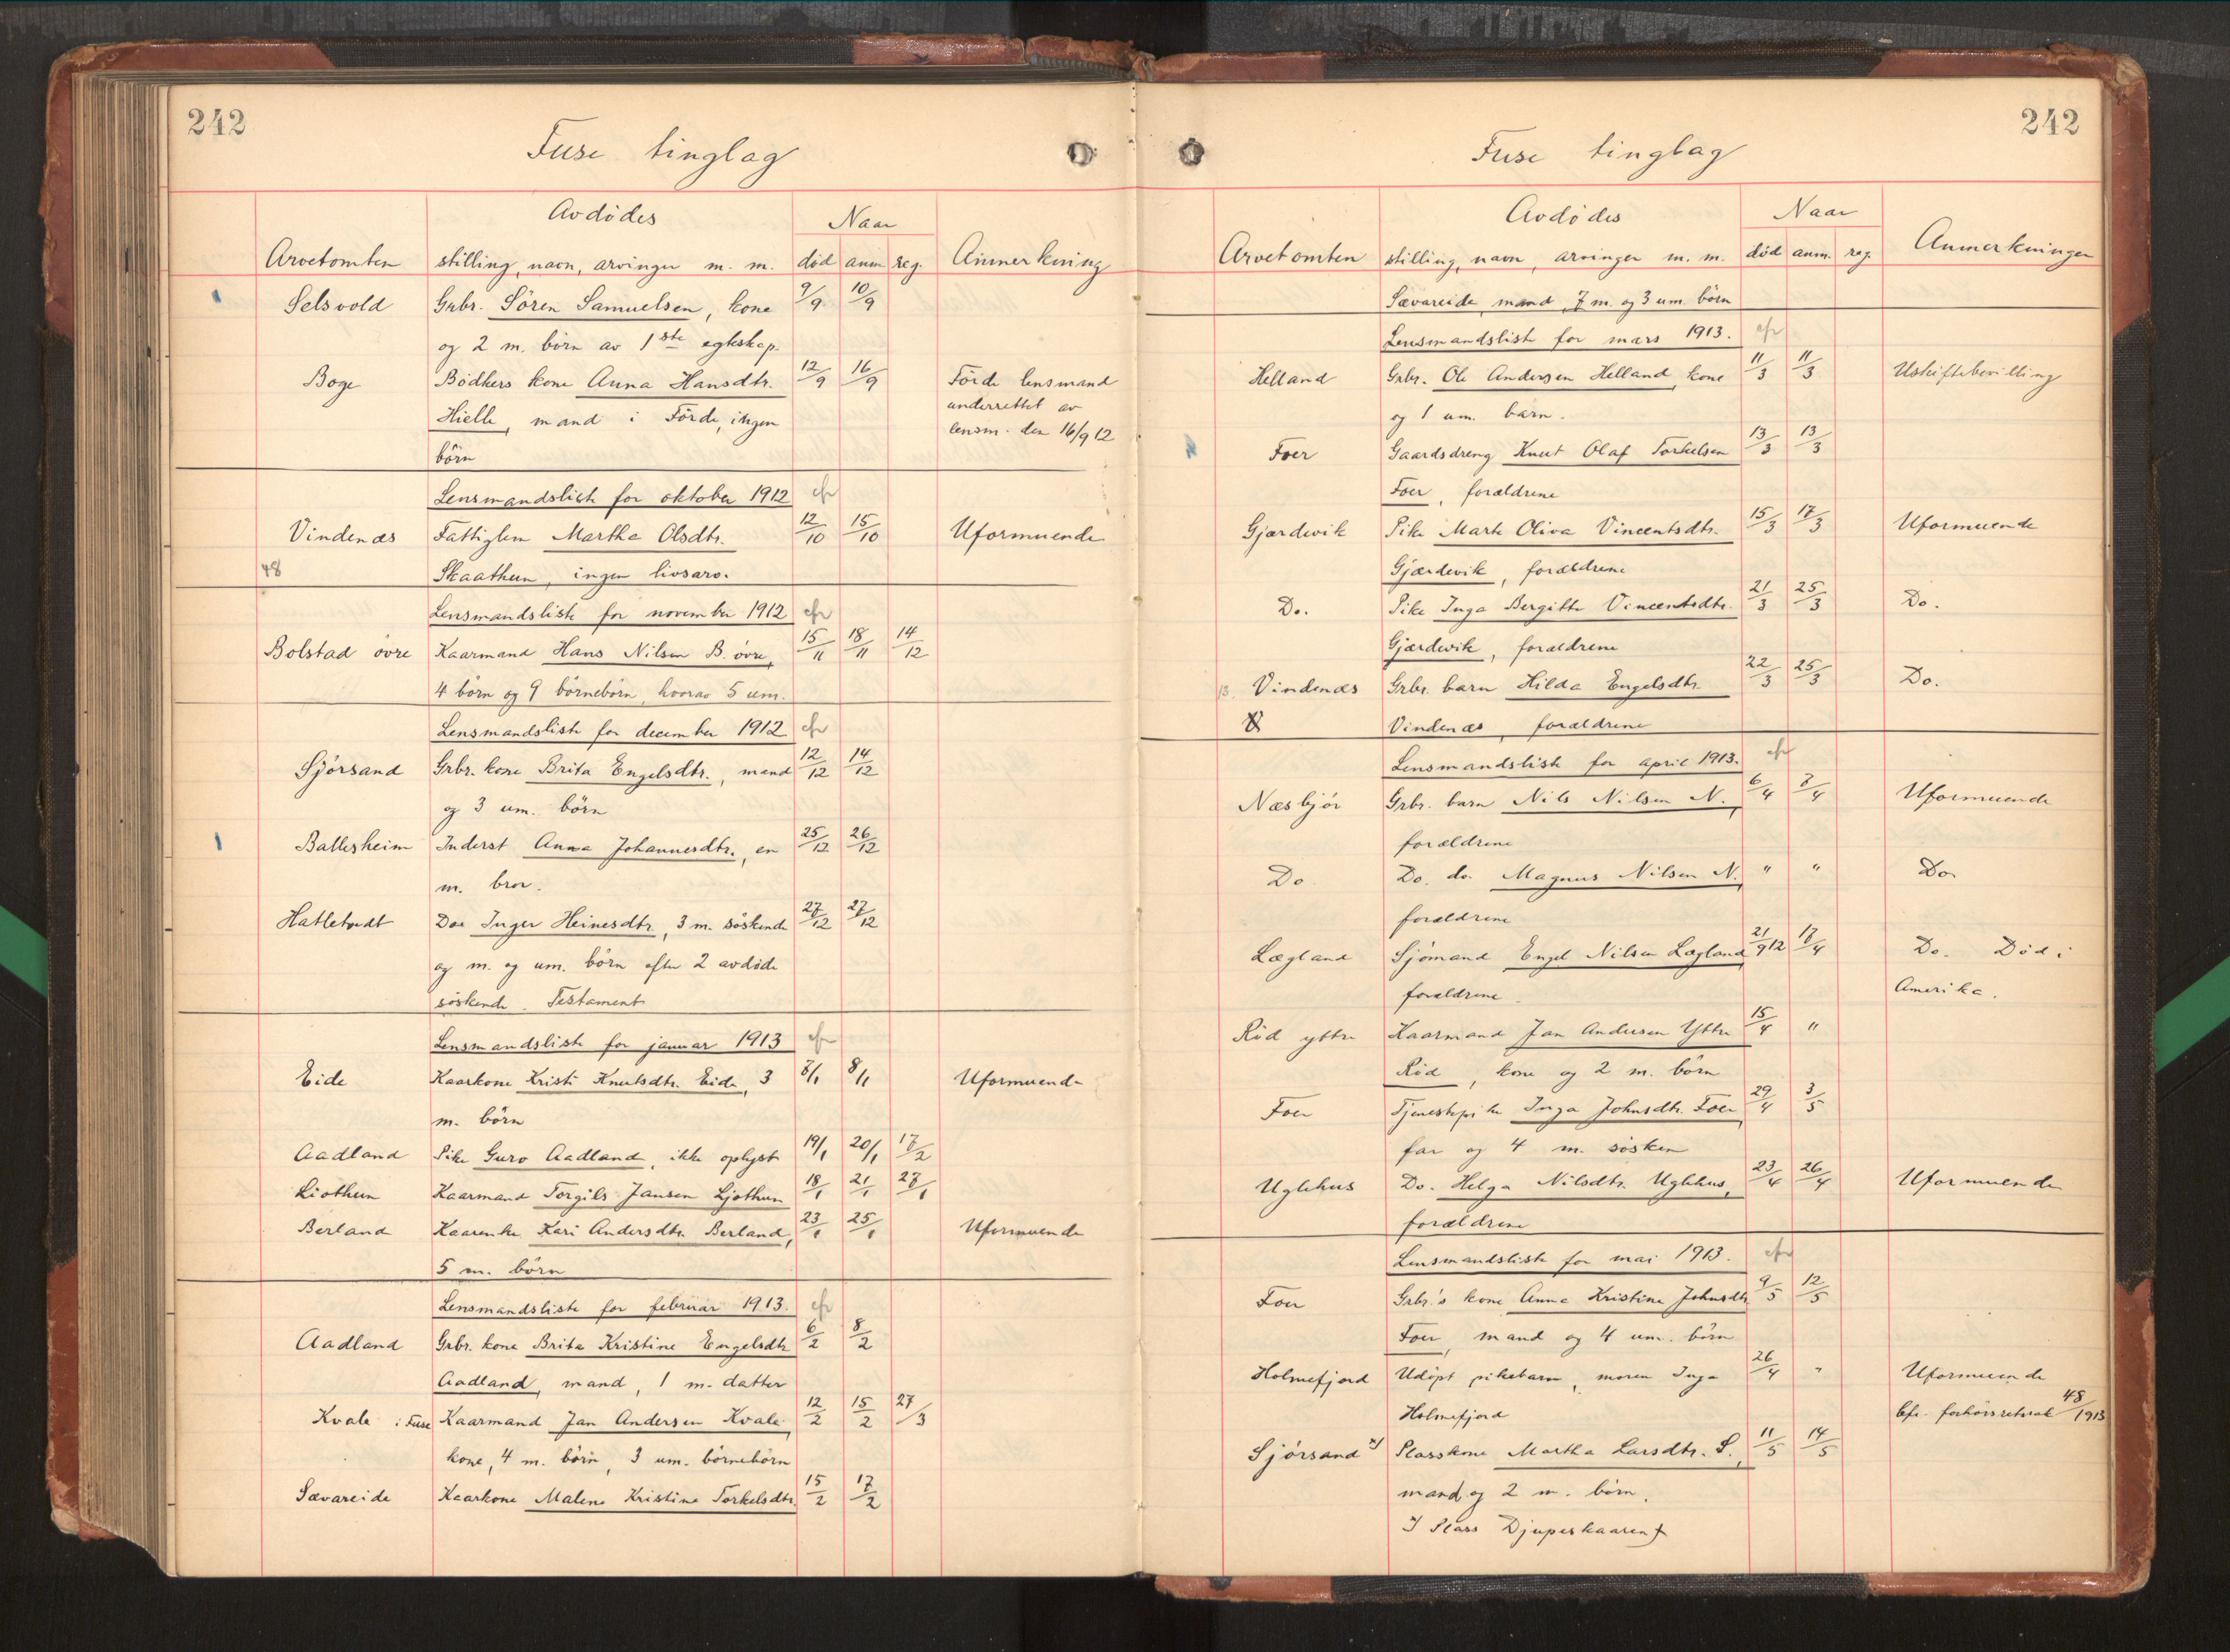 242
Fuse tinglag
Avdödes
Naar
Arvetomten stilling, navn, arvinger m. m. död anm. reg. Anmerkning
Selsvold Grbr. Sören Samuelsen, kone 9/9 10/9
og 2 m. börn av 1ste egteskap.
Boge Bödkers kone Anna Hansdtr. 12/9 16/9 Förde lensmand
Hielle, mand i Förde, ingen underrettet av
börn lensm. den 16/9 12
Lensmandsliste for oktober 1912 efr
Vindenæs Fattiglem Martha Olsdtr. 12/10 15/10 Uformuende
48 Skaathun, ingen livsarv.
Lensmandsliste for november 1912 efr
Bolstad övre Kaarmand Hans Nilsen B. övre, 15/11 18/11 14/12
4 börn og 9 börnebörn, hvorav 5 um.
Lensmandsliste for december 1912 efr
Sjörsand Grbr. kone Brita Engelsdtr., mand 12/12 14/12
og 3 um. börn
Ballesheim Inderst Anna Johannesdtr., en 25/12 26/12
m. bror.
Hatletvedt Do. Inger Heinesdtr., 3 m. söskende 27/12 27/12
og m. og um. börn efter 2 avdöde
söskende. Testament
Lensmandsliste for januar 1913 efr
Eide Kaarkone Kristi Knutsdtr. Eide, 3 8/1 8/1 Uformuende
m. börn
Aadland Pike Guro Aadland, ikke oplyst 19/1 20/1 17/2
Liothun Kaarmand Torgils Jansen Ljothun 18/1 21/1 28/1
Berland Kaarenke Kari Andersdtr. Berland, 23/1 25/1 Uformuende
5 m. börn
Lensmandsliste for februar 1913. efr
Aadland Grbr. kone Brita Kristine Engelsdtr 6/2 8/2
Aadland, mand, 1 m. datter
Kvale i Fuse Kaarmand Jan Andersen Kvale 12/2 15/2 27/3
kone, 4 m. börn, 3 um. börnebörn
Sævareide Kaarkone Malene Kristine Torkelsdtr. 15/2 17/2
242
Fuse tinglag
Avdödes
Naar
Arvetomten stilling, navn, arvinger m. m. död anm. reg. Anmerkninger
Sævareide, mand, 7 m. og 3 um. börn
Lensmandsliste for mars 1913. efr
Helland Grbr. Ole Andersen Helland, kone 11/3 11/3 Uskiftebevilling
og 1 um. barn.
Foer Gaardsdreng Knut Olaf Torkelsen 13/3 13/3
Foer, forældrene
Gjærdevik Pike Marte Oliva Vincentsdtr. 15/3 17/3 Uformuende
Gjærdevik, forældrene
Do. Pike Inga Bergitte Vincentsdtr. 21/3 25/3 Do.
Gjærdevik, forældrene
13. Vindenæs Grbr. barn Hilda Engelsdtr. 22/3 25/3 Do.
Vindenæs, forældrene
Lensmandsliste for april 1913. efr
Næsbjör Grbr. barn Nils Nilsen N., 6/4 7/4 Uformuende
forældrene
Do Do. do. Magnus Nilsen N. " " Do.
forældrene
Lægland Sjömand Engel Nilsen Lægland 21/9 12 17/4 Do. Död i
forældrene. Amerika.
Röd yttre Kaarmand Jan Andersen Yttre 15/4 "
Röd, kone og 2 m. börn
Foer Tjenestepike Inga Johnsdtr. Foer 29/4 3/5
far og 4 m. sösken
Uglehus Do. Helga Nilsdtr. Uglehus, 23/4 26/4 Uformuende
forældrene
Lensmandsliste for mai 1913. efr
Foer Grbr.'s kone Anna Kristine Johnsdtr 9/5 12/5
Foer, mand og 4 um. börn
Holmefjord Udöpt pikebarn, moren Inga 26/4 " Uformuende
Holmefjord cfr. forhörsretssak 48/1913
Sjörsand x) Plasskone Martha Larsdtr. S., 11/5 14/5
mand og 2 m. börn.
x) Plass Djupeskaaren